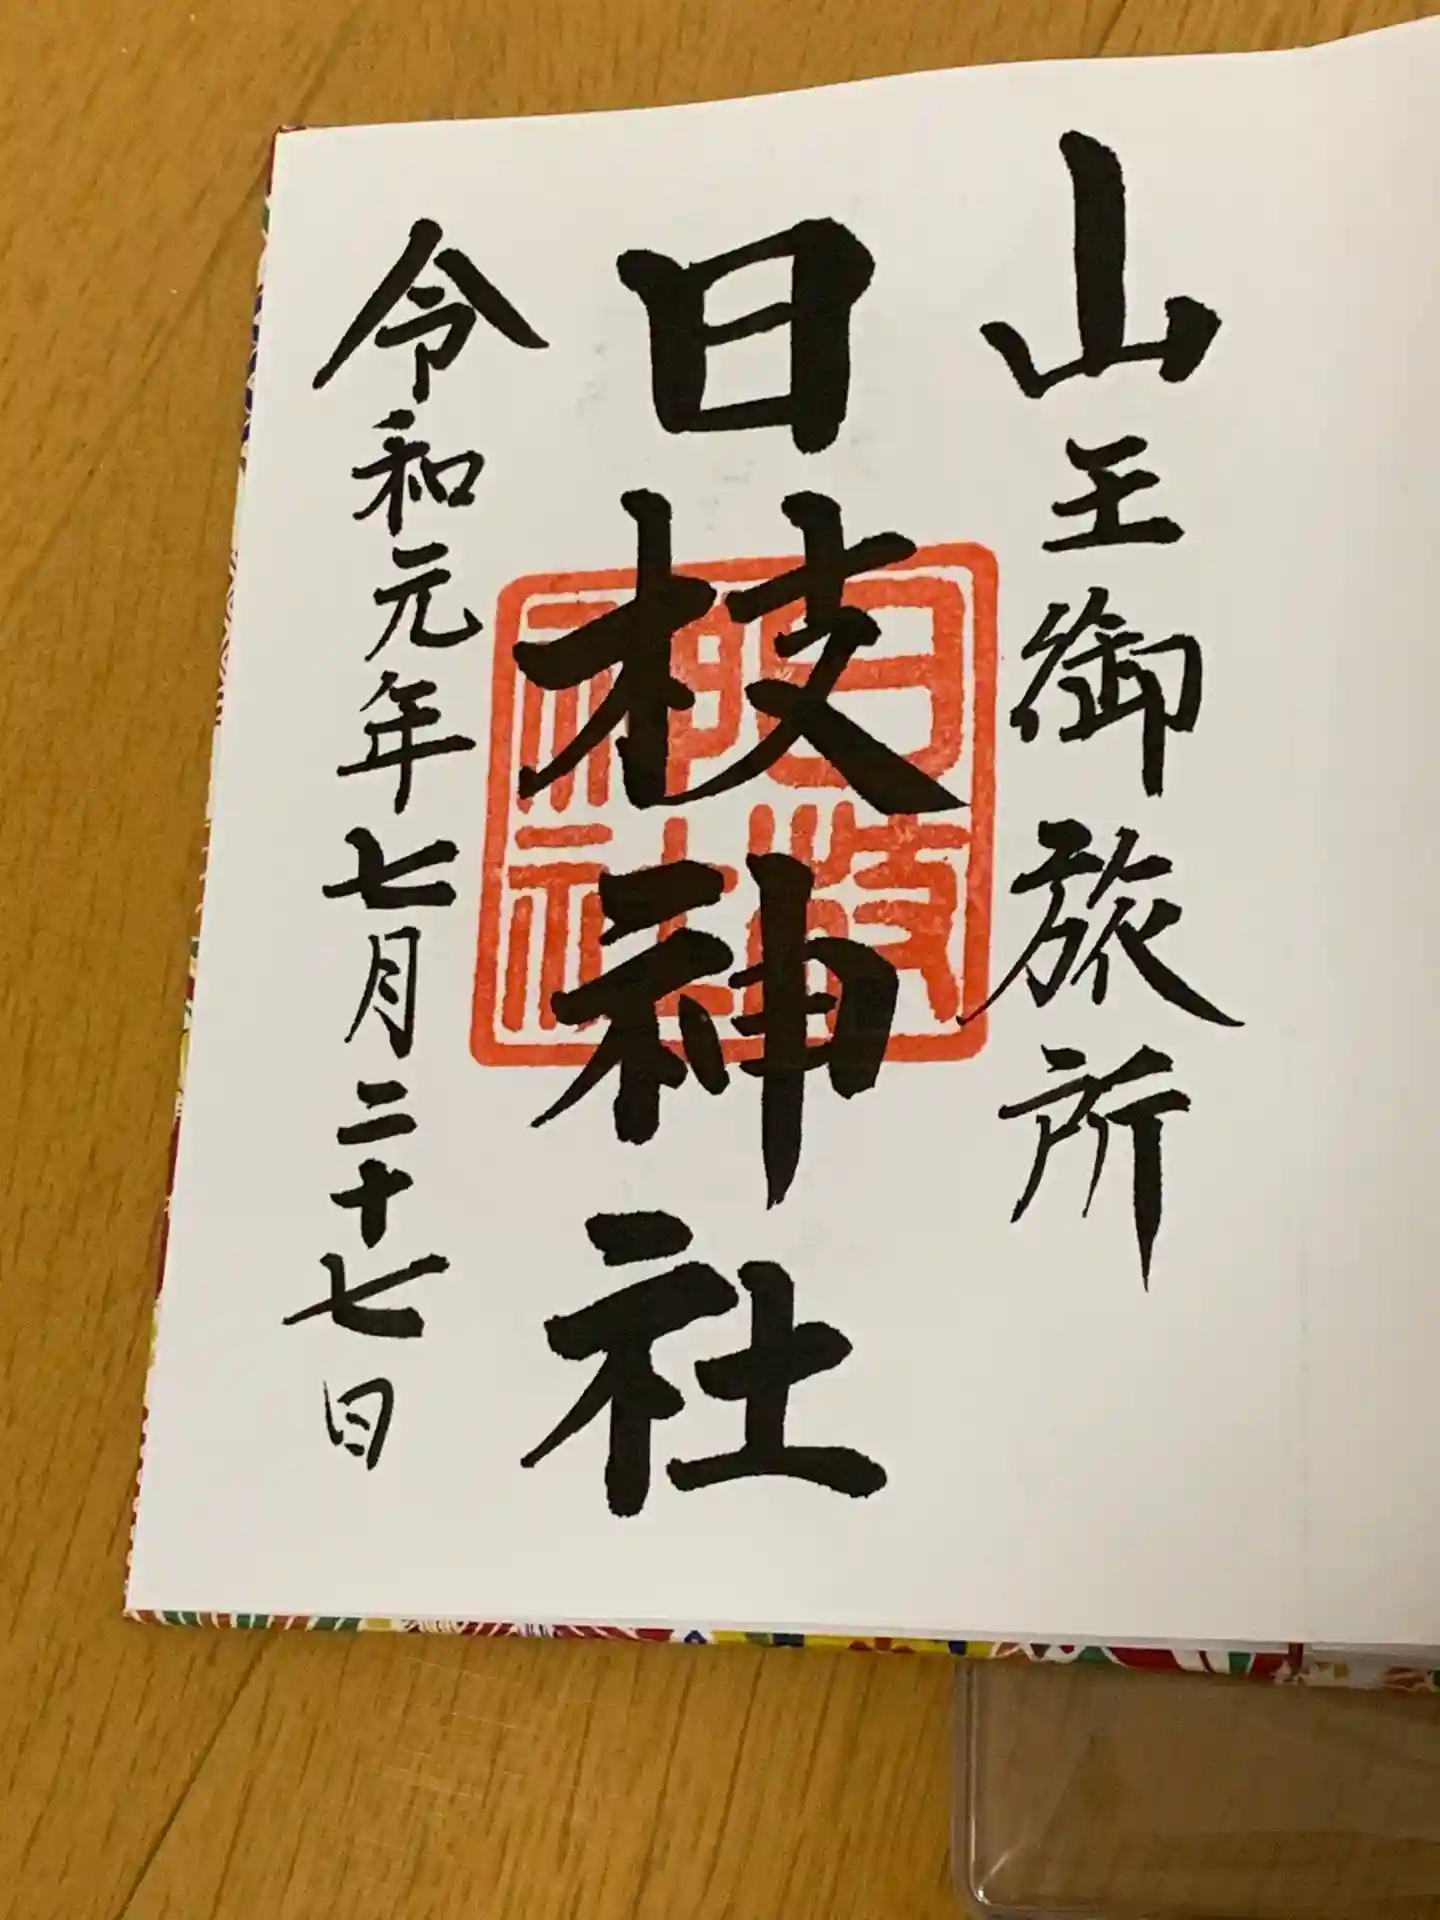 山王御旅所
日枝神社
日枝神社
令和元年七月二十七日